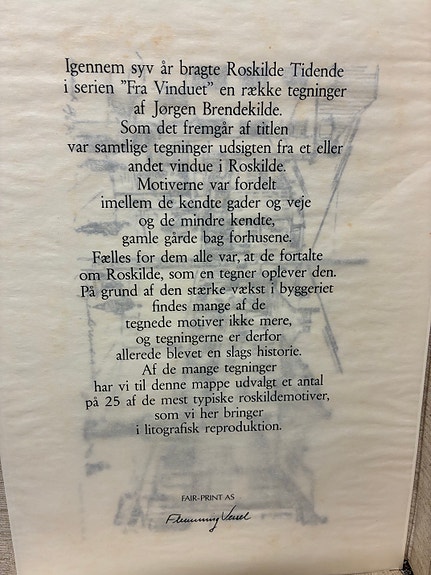 Igennem syv år bragte Roskilde Tidende
i serien "Fra Vinduet" en række tegninger
af Jørgen Brendekilde.
Som det fremgår af titlen
var samtlige tegninger udsigten fra et eller
andet vindue i Roskilde.
Motiverne var fordelt
imellem de kendte gader og veje
og de mindre kendte,
gamle gårde bag forhusene.
Fælles for dem alle var, at de fortalte
om Roskilde, som en tegner oplever den.
På grund af den stærke vækst i byggeriet
findes mange af de
tegnede motiver ikke mere,
og tegningerne er derfor
allerede blevet en slags historie.
Af de mange tegninger
har vi til denne mappe udvalgt et antal
på 25 af de mest typiske roskildemotiver,
som vi her bringer
i litografisk reproduktion.
FAIR-PRINT AS
Flemming